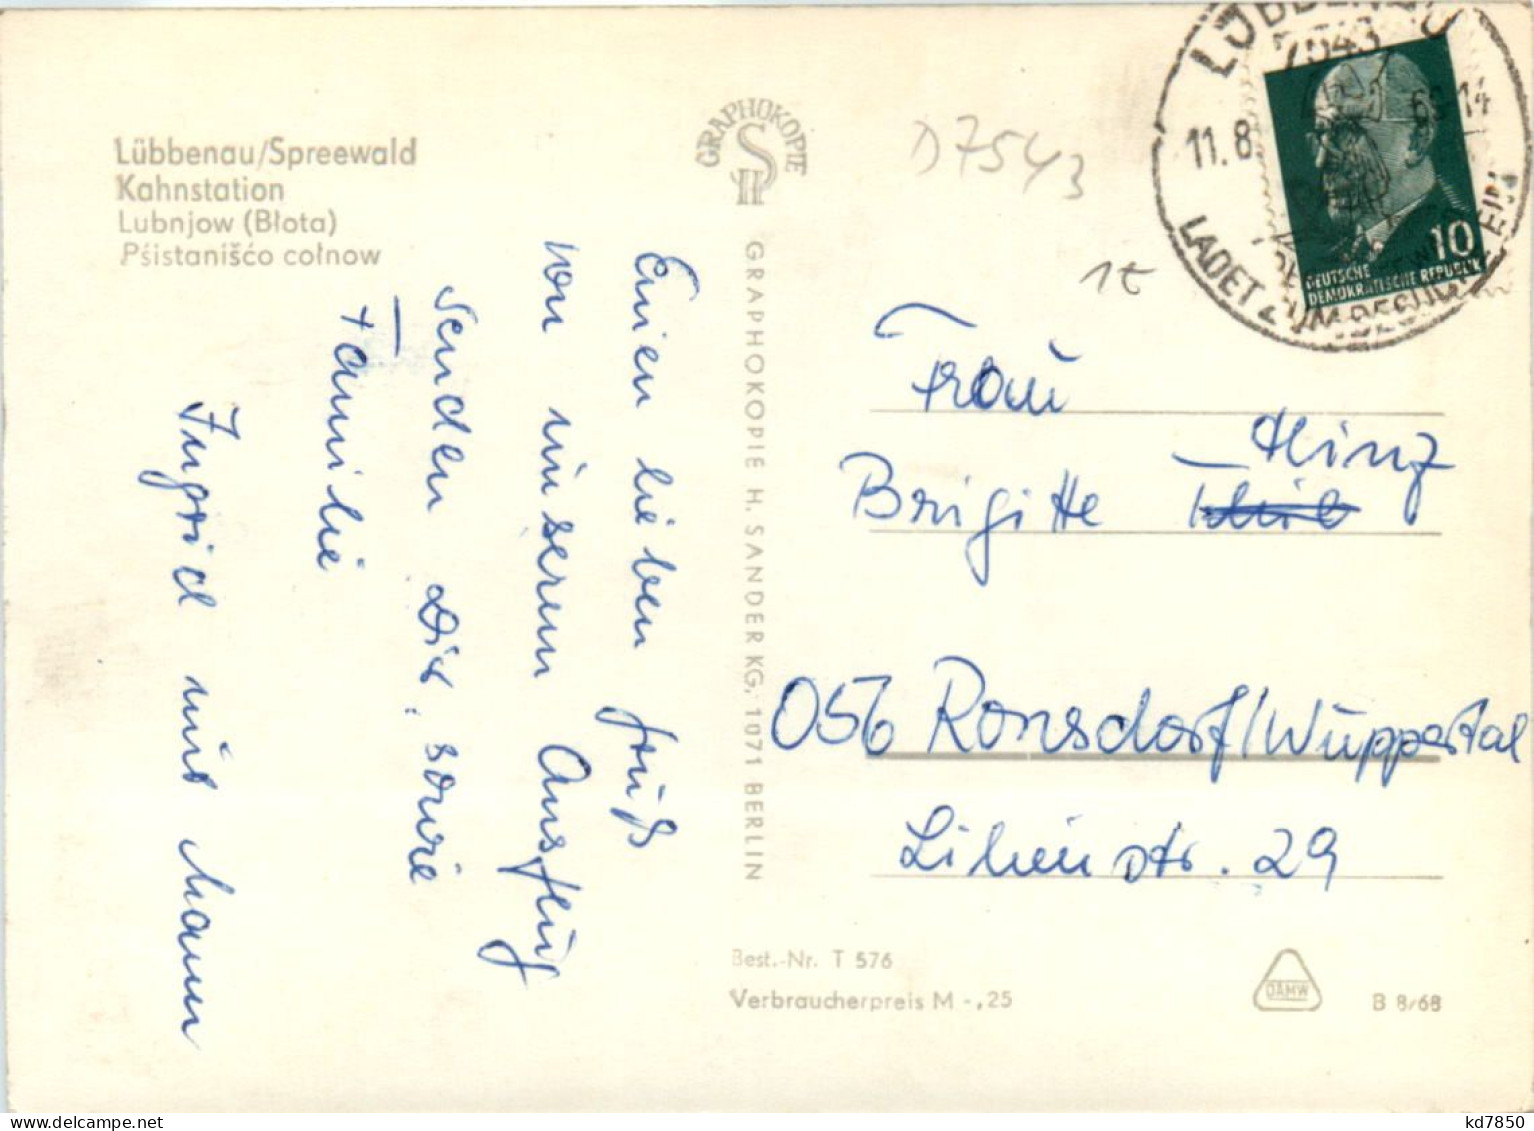 Lübbenau/Spreewald
Kahnstation
Lubnjow (Błota)
Pśistanišćo cołnow
GRAPHOKOPIE
H S
GRAPHOKOPIE H. SANDER KG, 1071 BERLIN
D7543
1€
LÜBBENAU
7543
11.8. 69-14
LADET ZUM BESUCH EIN
10
DEUTSCHE
DEMOKRATISCHE REPUBLIK
Einen lieben Gruß
von unserem Ausflug
senden Dir, sowie
Familie
Ingrid und Mann
Frau
Hinz
Brigitte
056 Ronsdorf/Wuppertal
Lilienstr. 29
Best.-Nr. T 576
Verbraucherpreis M -,25
DAMW
B 8/68
kd7850